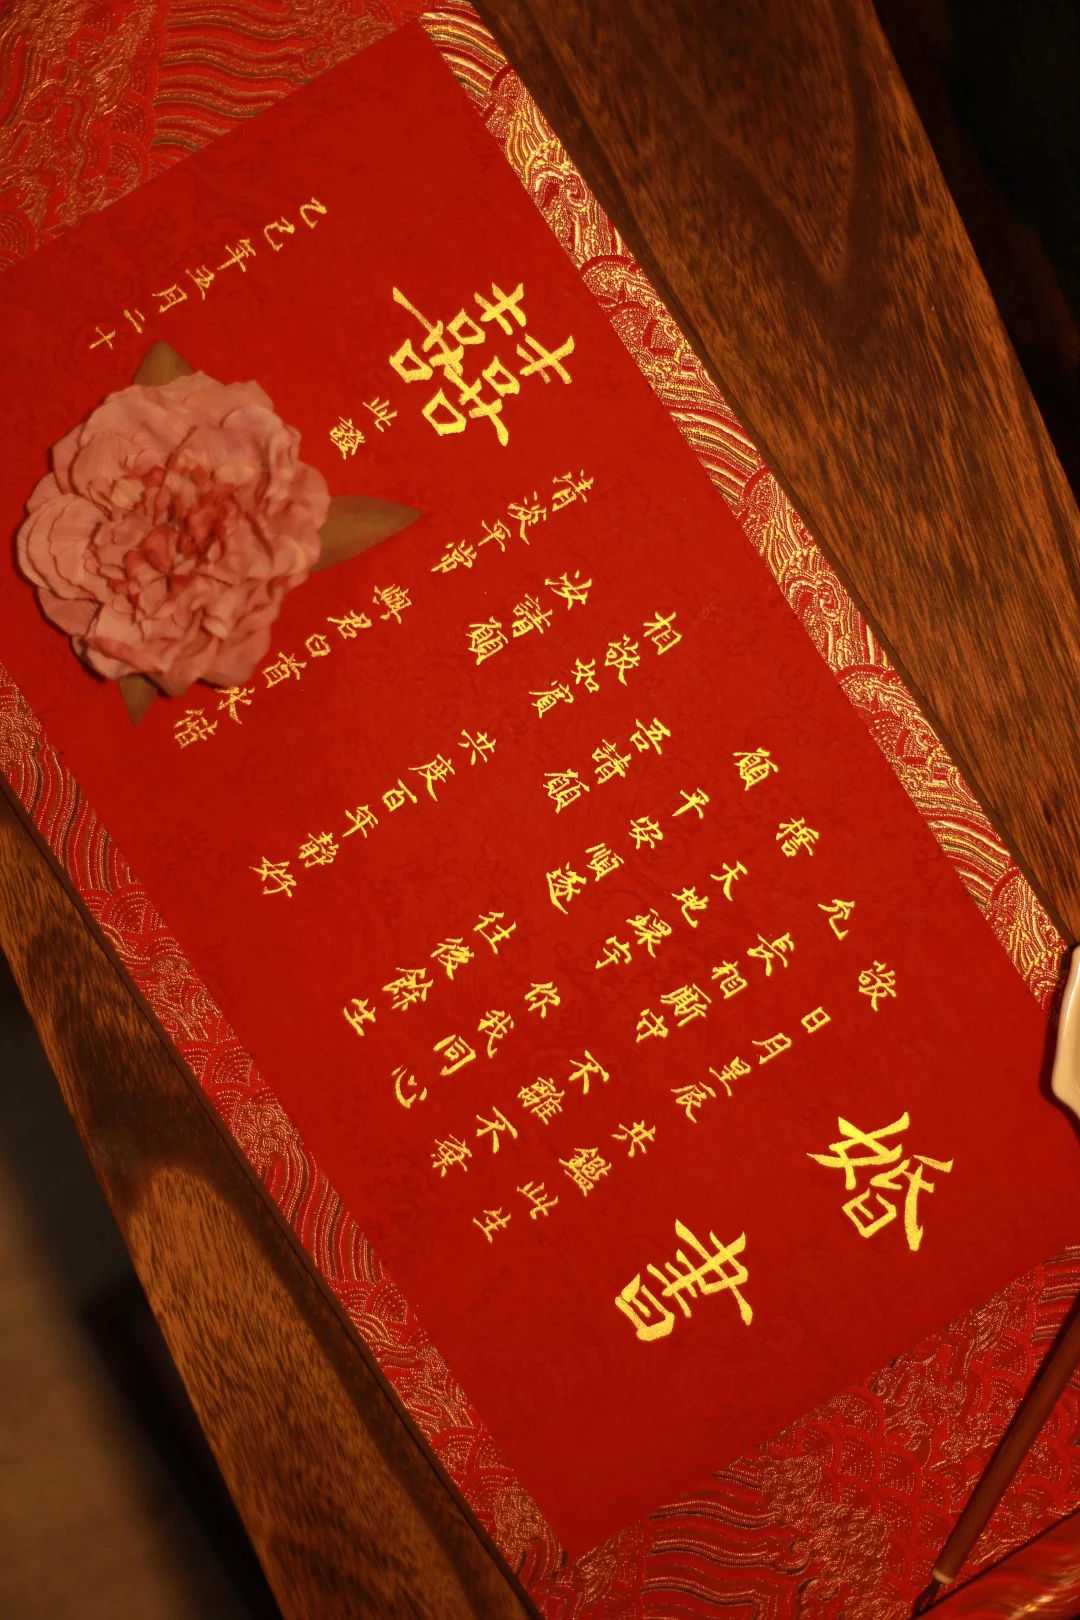 婚書
敬 日月星辰 共鑑此生
允 長相厮守 不離不棄
天地環宇 你我同心
願 平安順遂 往後餘生
吾請願
相敬如賓 共度百年靜好
汝請願
清淡平常 與君白首永偕
此證
囍
乙巳年五月二十